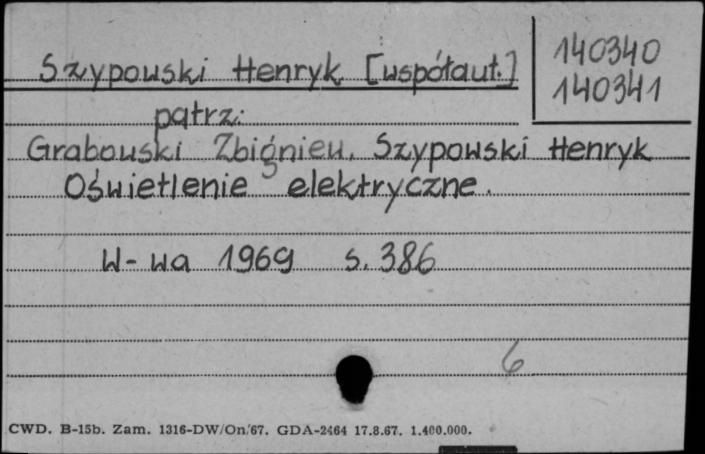 140340
140341
Szypowski Henryk [współaut.]
patrz:
Grabowski Zbigniew, Szypowski Henryk
Oświetlenie elektryczne.
W-wa 1969 s. 386
6
CWD. B-15b. Zam. 1316-DW/On/67. GDA-2464 17.8.67. 1.400.000.